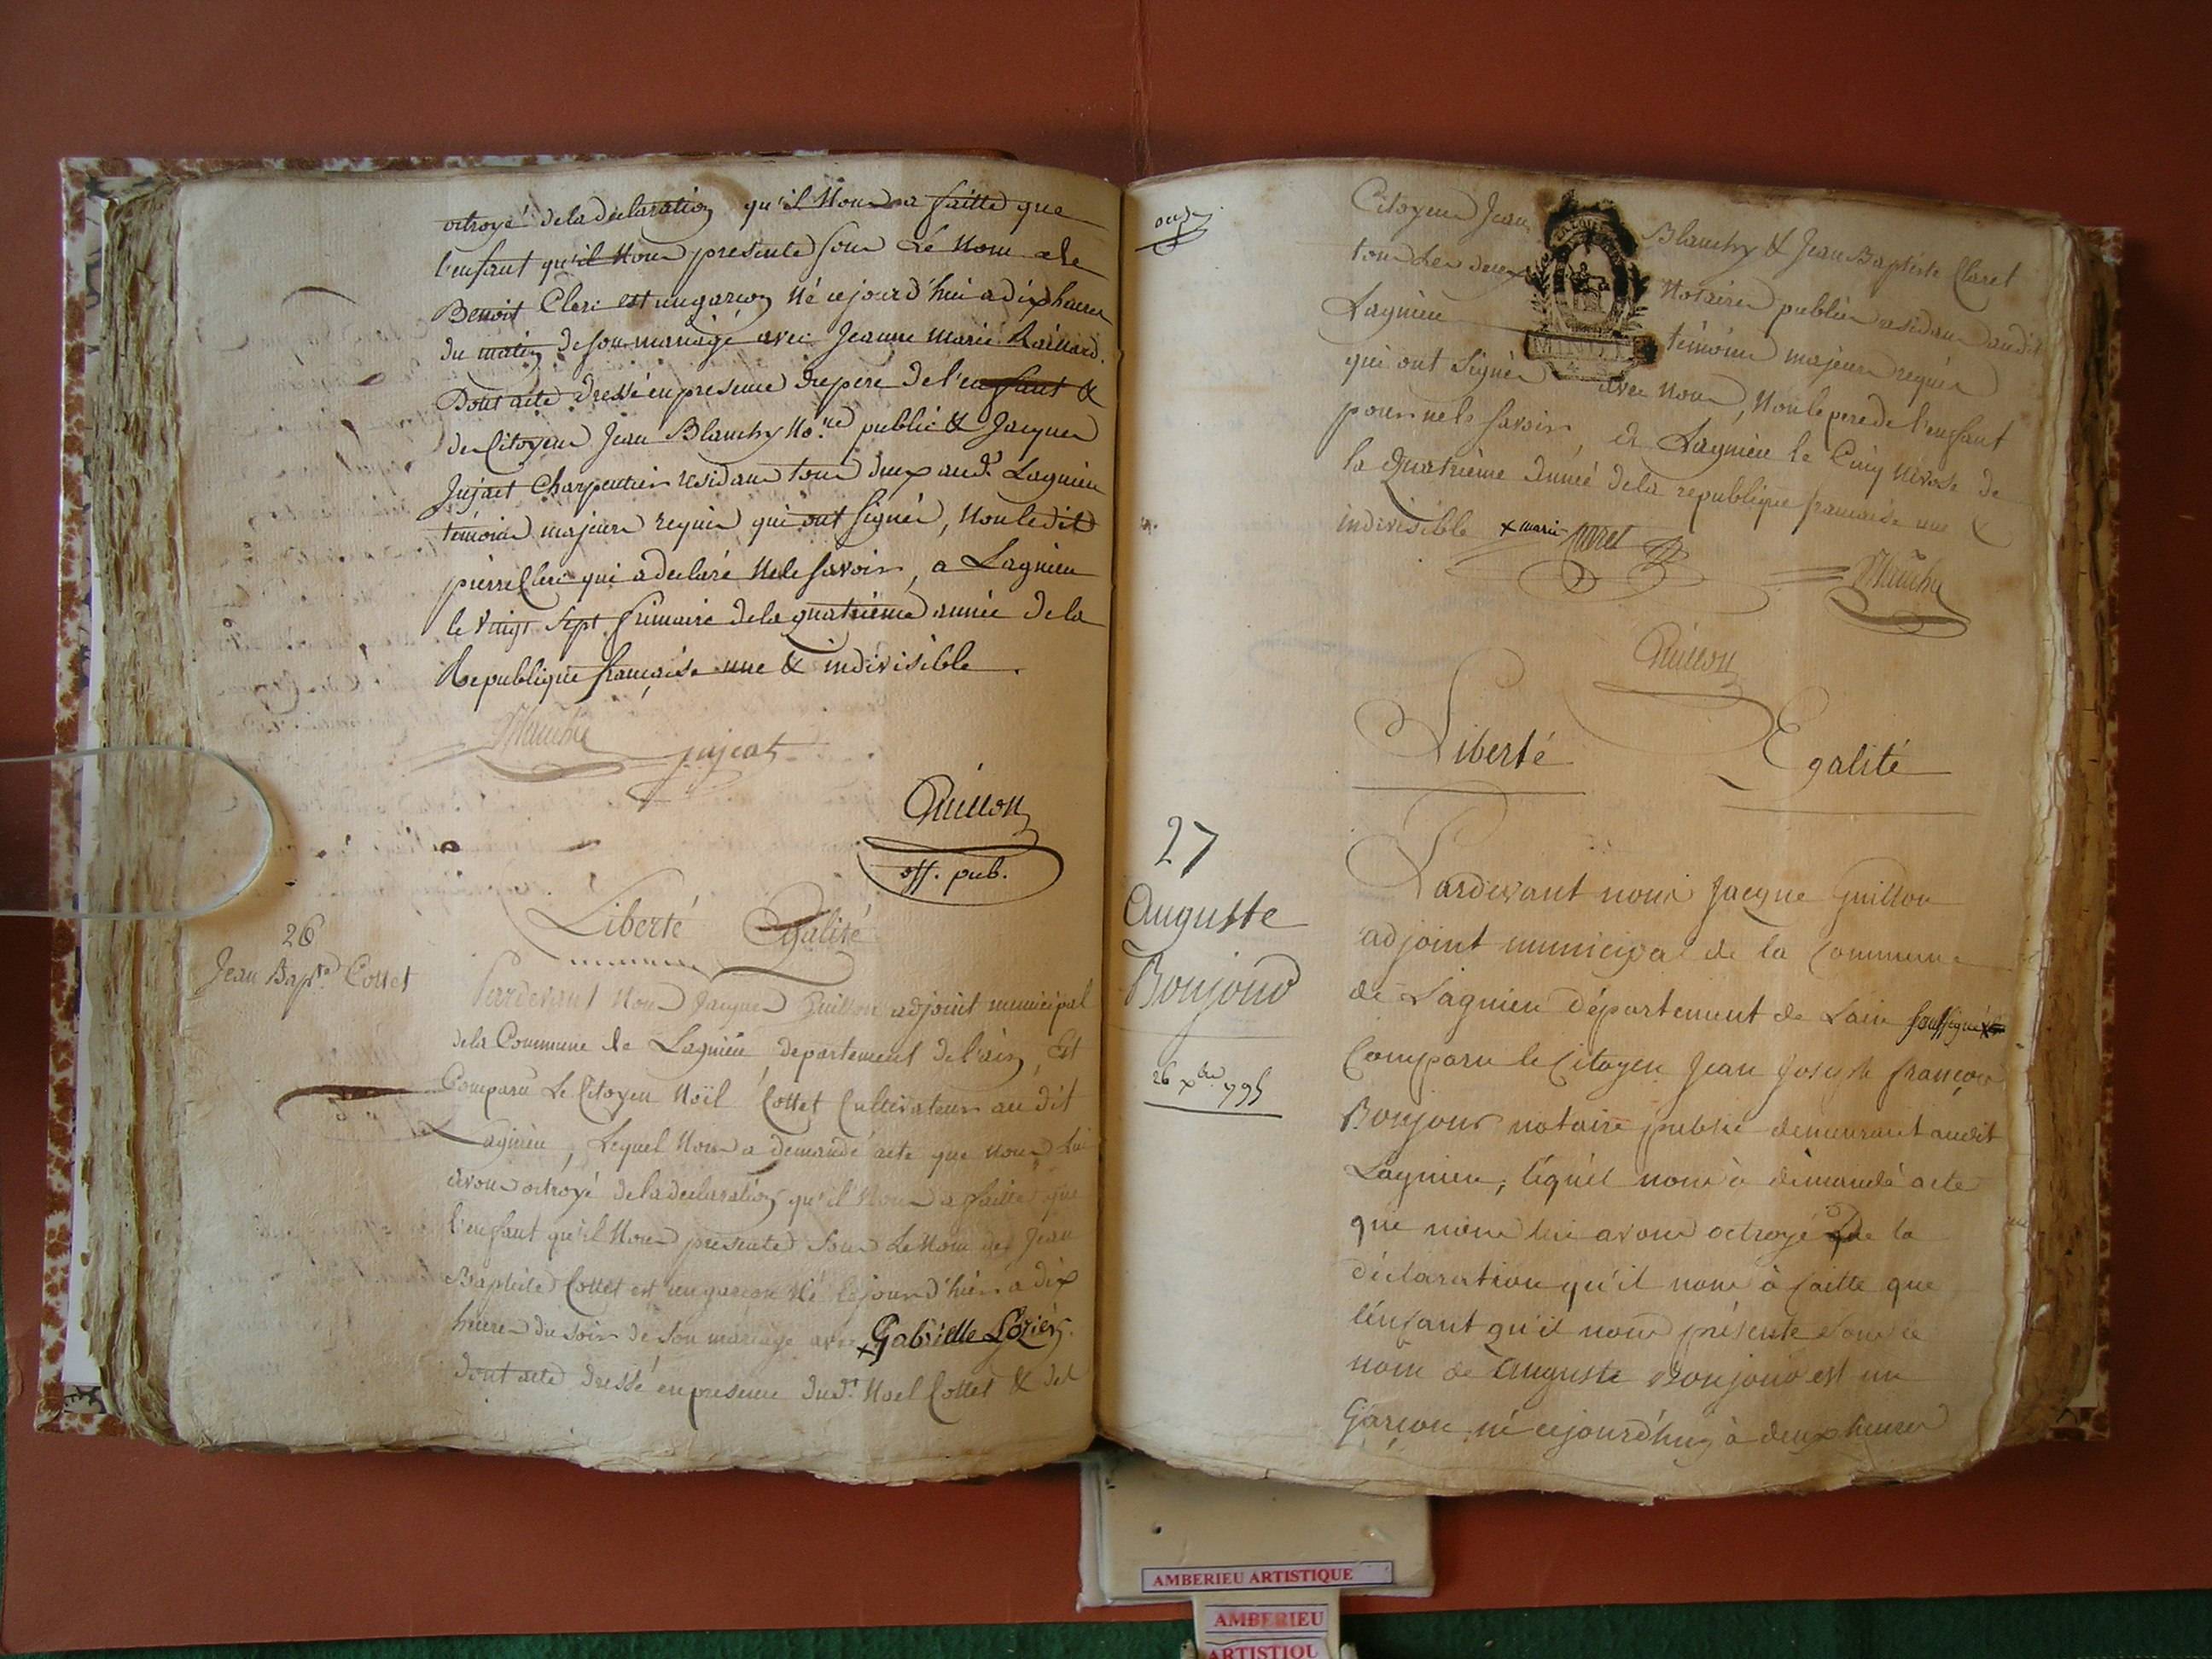 octroyé de la déclaration qu'il Nous a faitte que
l'enfant qu'il Nous presente sous Le Nom de
Benoit Clerc est un garçon Né cejourd'hui a dix heures
du matin de son mariage avec Jeanne Marie Rainard.
Dont acte dressé en presence du pere de l'enfant &
des Citoyens Jean Blanchy No.re public & Jacques
Jujeat Charpentier residans tous deux aud.t Lagnieu
témoins majeurs requis qui ont signés, Non ledit
pierre Clerc qui a declaré Ne le savoir, a Lagnieu
le vingt sept frimaire de la quatrieme année de la
Republique française une & indivisible.
Blanchy
jujeat
Guillon
off. pub.
Liberté Egalité
26
Jean Bap.te Cottet
Pardevant Nous Jacques Guillon adjoint municipal
de la Commune de Lagnieu, departement de l'ain, Est
Comparu Le Citoyen Noël Cottet Cultivateur au dit
Lagnieu, Lequel Nous a demandé acte que nous Lui
avons octroyé de la declaration qu'il Nous a faitte que
l'enfant qu'il Nous presente sous Le Nom de Jean
Baptiste Cottet est un garçon Né le jour d'hier a dix
heures du soir de son mariage avec x Gabrielle Lozier.
dont acte dressé en presence dud.t Noel Cottet & des
Citoyens Jean Blanchy & Jean Baptiste Claret
tous les deux Notaires publics residans audit
Lagnieu témoins majeurs requis
MINUTE
qui ont signés avec Nous, Non le pere de l'enfant
pour ne le savoir, a Lagnieu le Cinq Nivose de
la Quatrieme Année de la republique francaise une &
indivisible x marie Claret
Blanchy
Guillon
Liberté Egalité
27
Auguste
Bonjour
26 xbre 1795
Pardevant nous Jacque Guillon
adjoint municipal de la Commune
de Lagnieu département de Lain soussigné
Comparu le Citoyen Jean Joseph françois
Bonjour notaire public demeurant audit
Lagnieu, lequel nous à démandé acte
que nous lui avons octroyé De la
déclaration qu'il nous à faitte que
lénfant qu'il nous présente sous le
nom de Auguste Bonjour est un
Garçon né cejourd'huy à deux heures
AMBERIEU ARTISTIQUE
AMBERIEU
ARTISTIQU